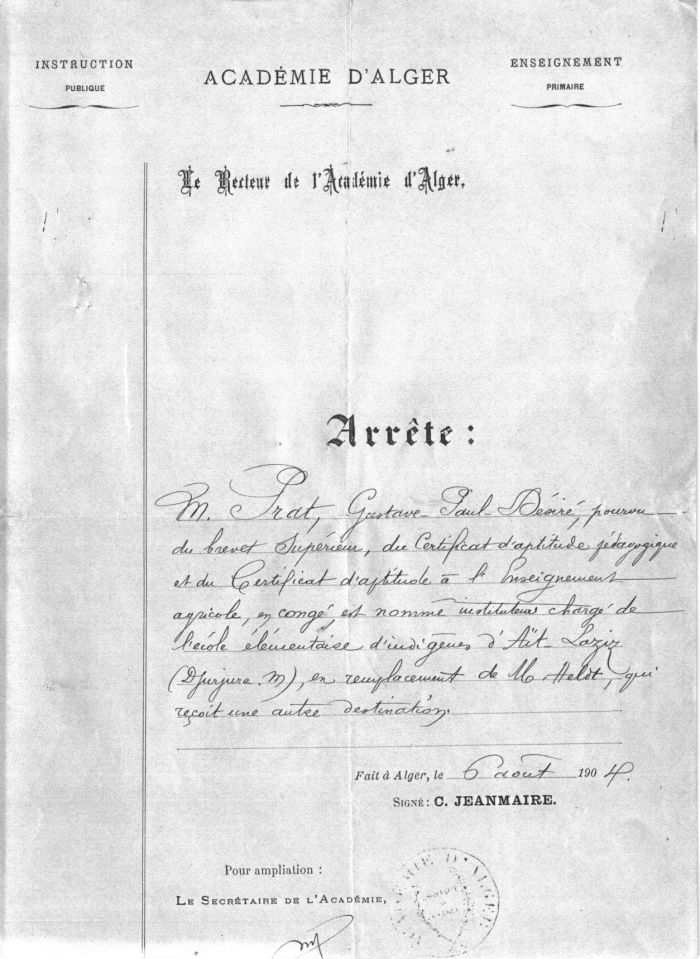 INSTRUCTION
PUBLIQUE
ACADÉMIE D'ALGER
ENSEIGNEMENT
PRIMAIRE
Le Recteur de l'Académie d'Alger,
Arrête :
M. Prat, Gustave-Paul-Désiré, pourvu
du brevet Supérieur, du Certificat d'aptitude pédagogique
et du Certificat d'aptitude à l'Enseignement
agricole, en congé, est nommé instituteur chargé de
l'école élémentaire d'indigènes d'Aït-Laziz
(Djurjura. M), en remplacement de M. Heldt, qui
reçoit une autre destination.
Fait à Alger, le 6 août 1904.
SIGNÉ : C. JEANMAIRE.
Pour ampliation :
LE SECRÉTAIRE DE L'ACADÉMIE,
ACADÉMIE D'ALGER